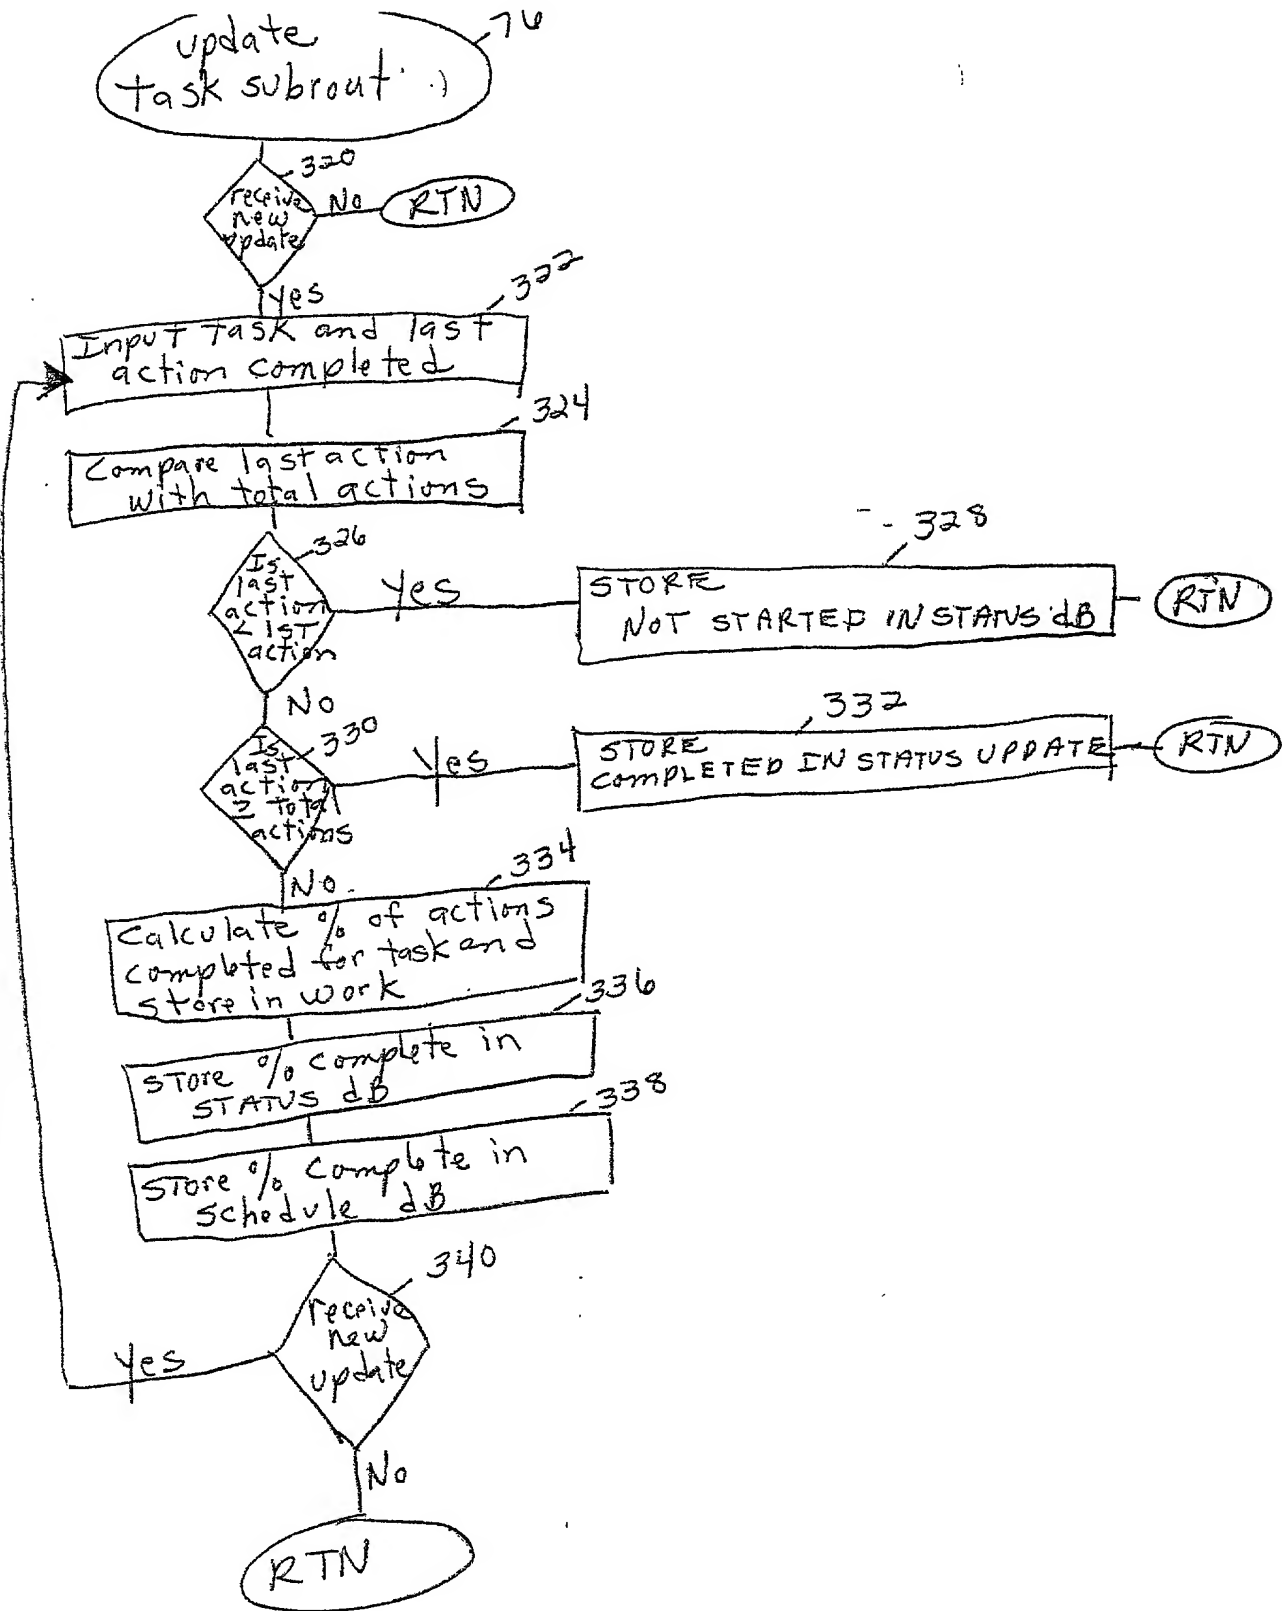 76
update
task subrout
320
receive
new
update
No
RTN
yes
322
Input task and last
action completed
324
Compare last action
with total actions
326
Is
last
action
< 1st
action
Yes
328
STORE
NOT STARTED IN STATUS dB
RTN
No
330
Is
last
action
≥ total
actions
Yes
332
STORE
COMPLETED IN STATUS UPDATE
RTN
No
334
Calculate % of actions
completed for task and
store in work
336
Store % complete in
STATUS dB
338
Store % complete in
schedule dB
340
receive
new
update
Yes
No
RTN